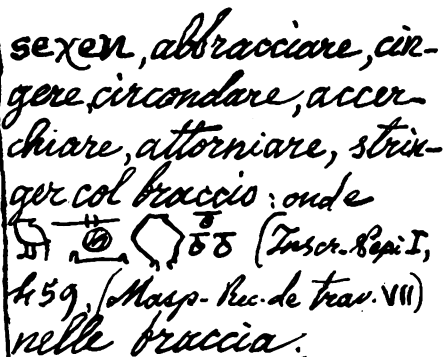 sexen, abbracciare, cin-
gere, circondare, accer-
chiare, attorniare, strin-
ger col braccio: onde
(Inscr. Pepi I,
459, (Masp- Rec. de trav. VII)
nelle braccia.